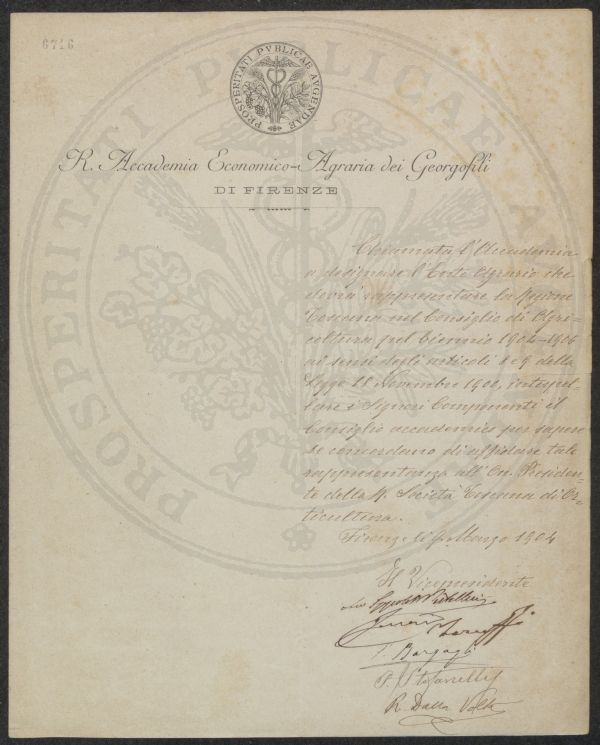 6746
PROSPERITATI PVBLICAE AVGENDAE
R. Accademia Economico-Agraria dei Georgofili
DI FIRENZE
Chiamata l'Accademia
a designare l'Ente Agrario che
dovrà rappresentare la
Toscana nel Consiglio di Agri=
coltura pel biennio 1904-1906
ai sensi degli articoli 8 e 9 della
Legge 18 Novembre 1900, interpel=
lare i Signori Componenti il
Consiglio accademico per sapere
se concordano di affidare tale
rappresentanza all'On. Presiden=
te della R. Società Toscana di Or=
ticultura.
Firenze li Marzo 1904
Il Vicepresidente
P. Stefanelli
R. Dalla Volta